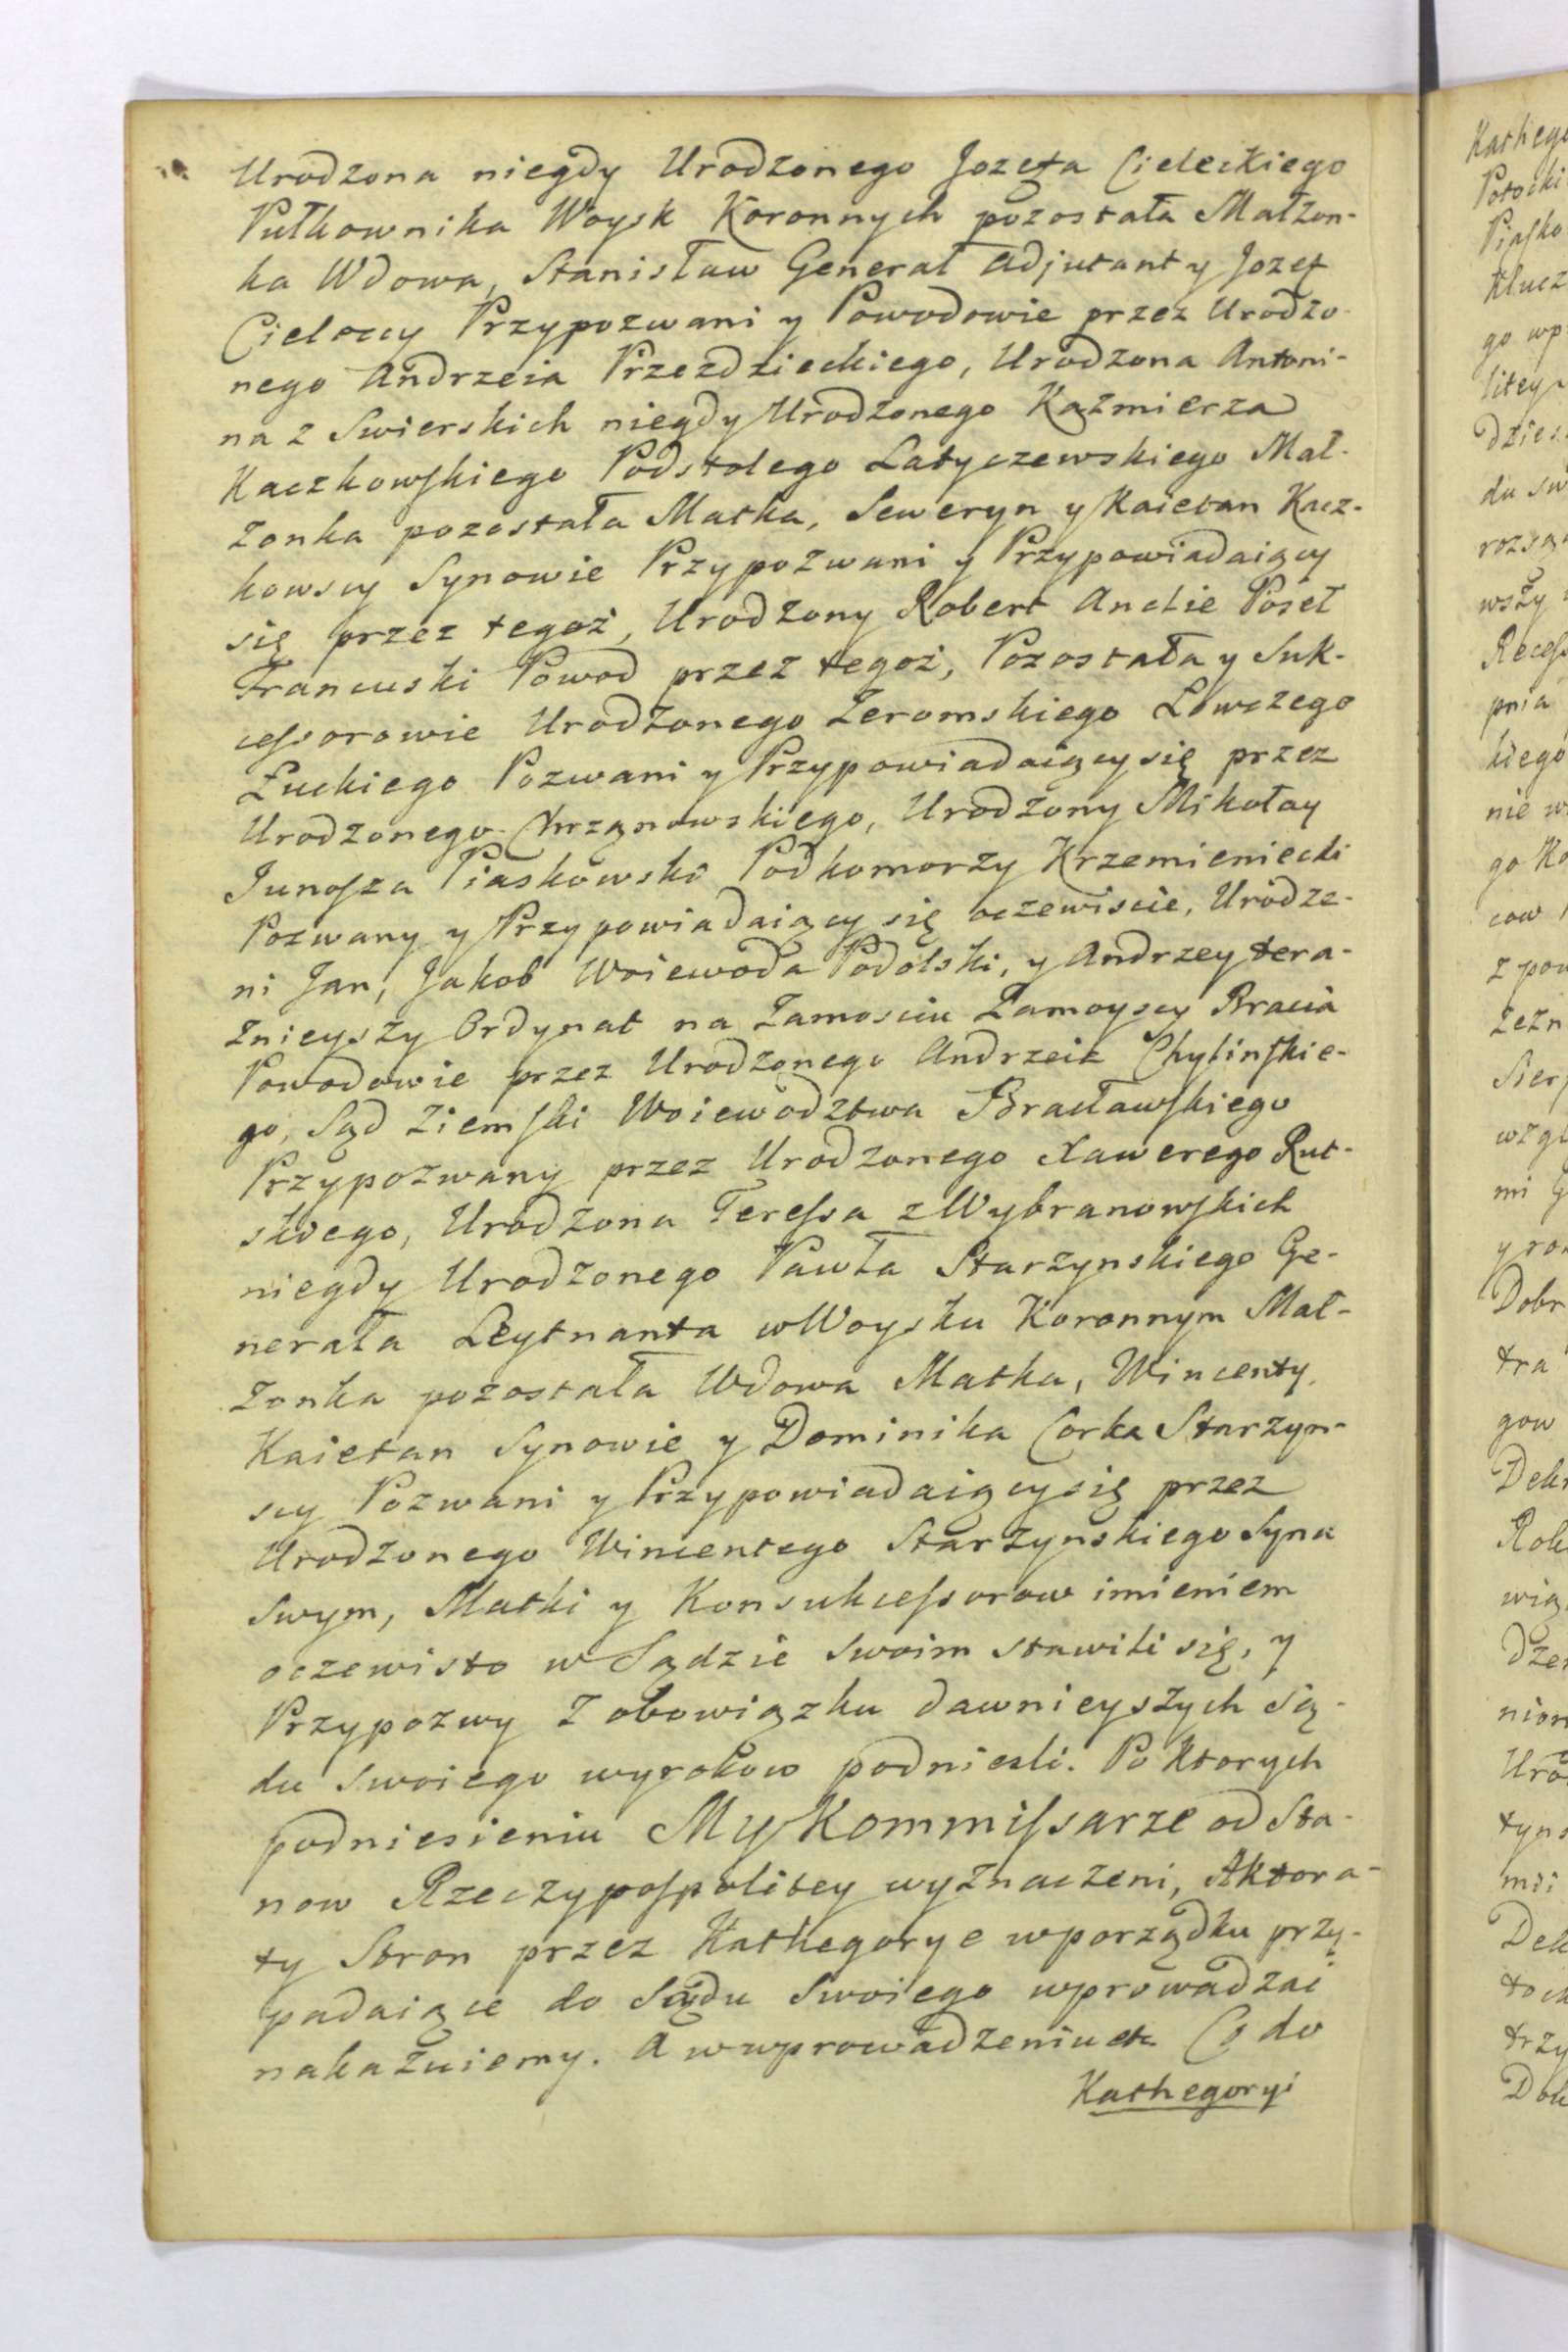 Urodzona niegdy Urodzonego Jozefa Cieleckiego
Pułkownika Woysk Koronnych pozostała Małżon-
ka Wdowa, Stanisław Generał Adjutant y Jozef
Cieleccy Przypozwani y Powodowie przez Urodzo-
nego Andrzeia Przezdzieckiego, Urodzona Antoni-
na z Swierskich niegdy Urodzonego Kazmierza
Kaczkowskiego Podstolego Latyczewskiego Mał-
żonka pozostała Matka, Seweryn y Kaietan Kacz-
kowscy Synowie Przypozwani y Przypowiadaiący
się przez tegoż, Urodzony Robert Anclie Poseł
Francuski Powod przez tegoż, Pozostała y Suk-
cessorowie Urodzonego Żeromskiego Łowczego
Łuckiego Pozwani y Przypowiadaiący się przez
Urodzonego Chrząnowskiego, Urodzony Mikołay
Junosza Piaskowski Podkomorzy Krzemieniecki
Pozwany y Przypowiadaiący się oczewiscie, Urodze-
ni Jan, Jakob Woiewoda Podolski, y Andrzey tera-
znieyszy Ordynat na Zamosciu Zamoyscy Bracia
Powodowie przez Urodzonego Andrzeia Chylinskie-
go, Sąd Ziemski Woiewodztwa Bracławskiego
Przypozwany przez Urodzonego Xawerego Rut-
skiego, Urodzona Teressa z Wybranowskich
niegdy Urodzonego Pawła Starzynskiego Ge-
nerała Leytnanta w Woysku Koronnym Mał-
żonka pozostała Wdowa Matka, Wincenty,
Kaietan Synowie y Dominika Corka Starzyn-
scy Pozwani y Przypowiadaiący się przez
Urodzonego Wincentego Starzynskiego Syna
Swym, Matki y Konsukcessorow imieniem
oczewisto w Sądzie Swoim stawili się, y
Przypozwy z obowiązku dawnieyszych Są-
du Swoiego wyrokow podniesli. Po Ktorych
podniesieniu My Kommissarze od Sta-
now Rzeczypospolitey wyznaczeni, Aktora-
ty Stron przez Kathegorye w porządku przy-
padaiące do Sądu Swoiego wprowadzać
nakazuiemy. A w wprowadzeniu Co do
Kathegoryi